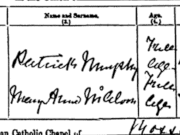 Name and Surname. Age.
(2.) (3.)
Patrick Murphy Full
age
Mary Anne Full
age
an Catholic Chapel of